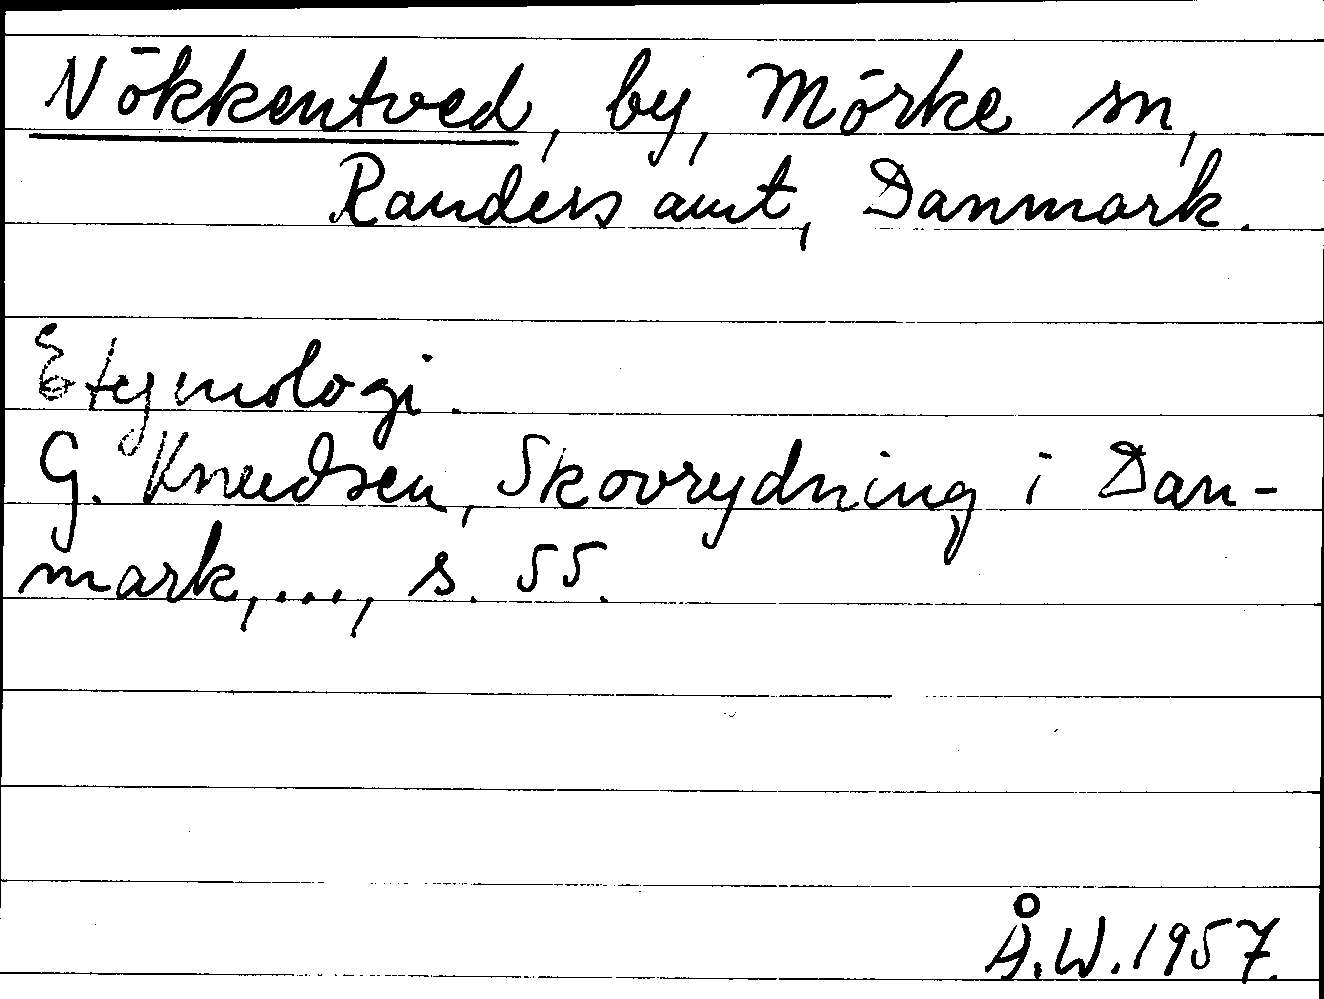 Nökkentved, by, Mörke sn,
Randers amt, Danmark.
Etymologi.
G. Knudsen, Skovrydning i Dan-
mark, ..., s. 55.
Å.W. 1957.